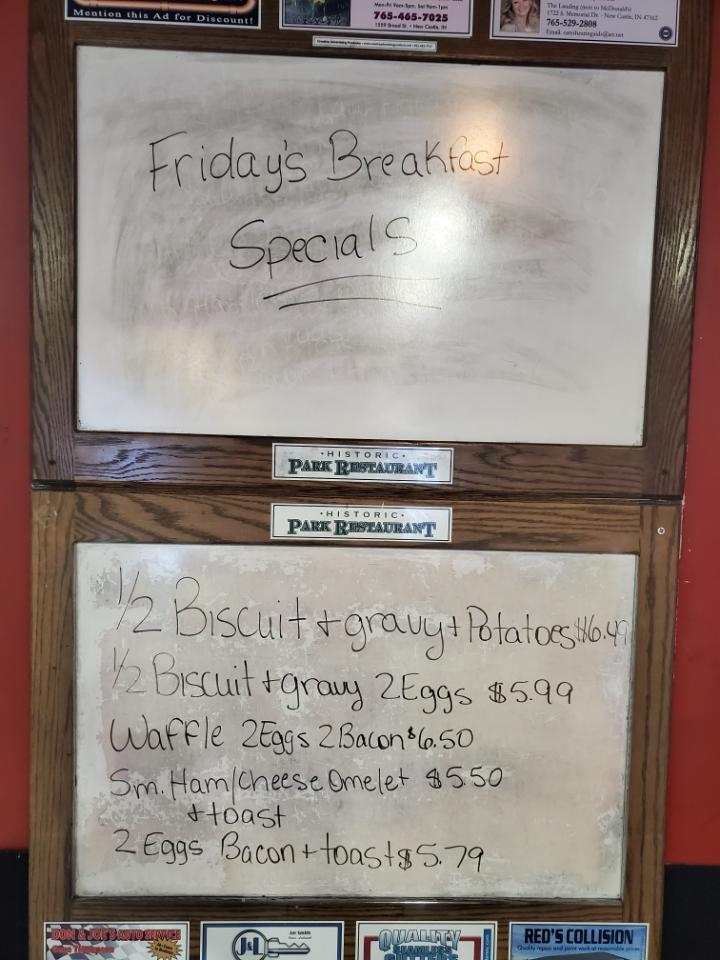 Mention this Ad for Discount!
Mon-Fri 9am-5pm, Sat 9am-1pm
765-465-7025
1559 Broad St. • New Castle, IN
The Landing (next to McDonald's)
1722 S. Memorial Dr. · New Castle, IN 47362
765-529-2808
Friday's Breakfast
Specials
• HISTORIC •
PARK RESTAURANT
• HISTORIC •
PARK RESTAURANT
1/2 Biscuit + gravy + Potatoes $6.49
1/2 Biscuit + gravy 2 Eggs $5.99
Waffle 2 Eggs 2 Bacon $6.50
Sm. Ham/Cheese Omelet $5.50
+ toast
2 Eggs Bacon + toast $5.79
DON & JOE'S AUTO SERVICE
J&L
QUALITY
SEAMLESS
GUTTERS
RED'S COLLISION
Quality repair and paint work at reasonable prices